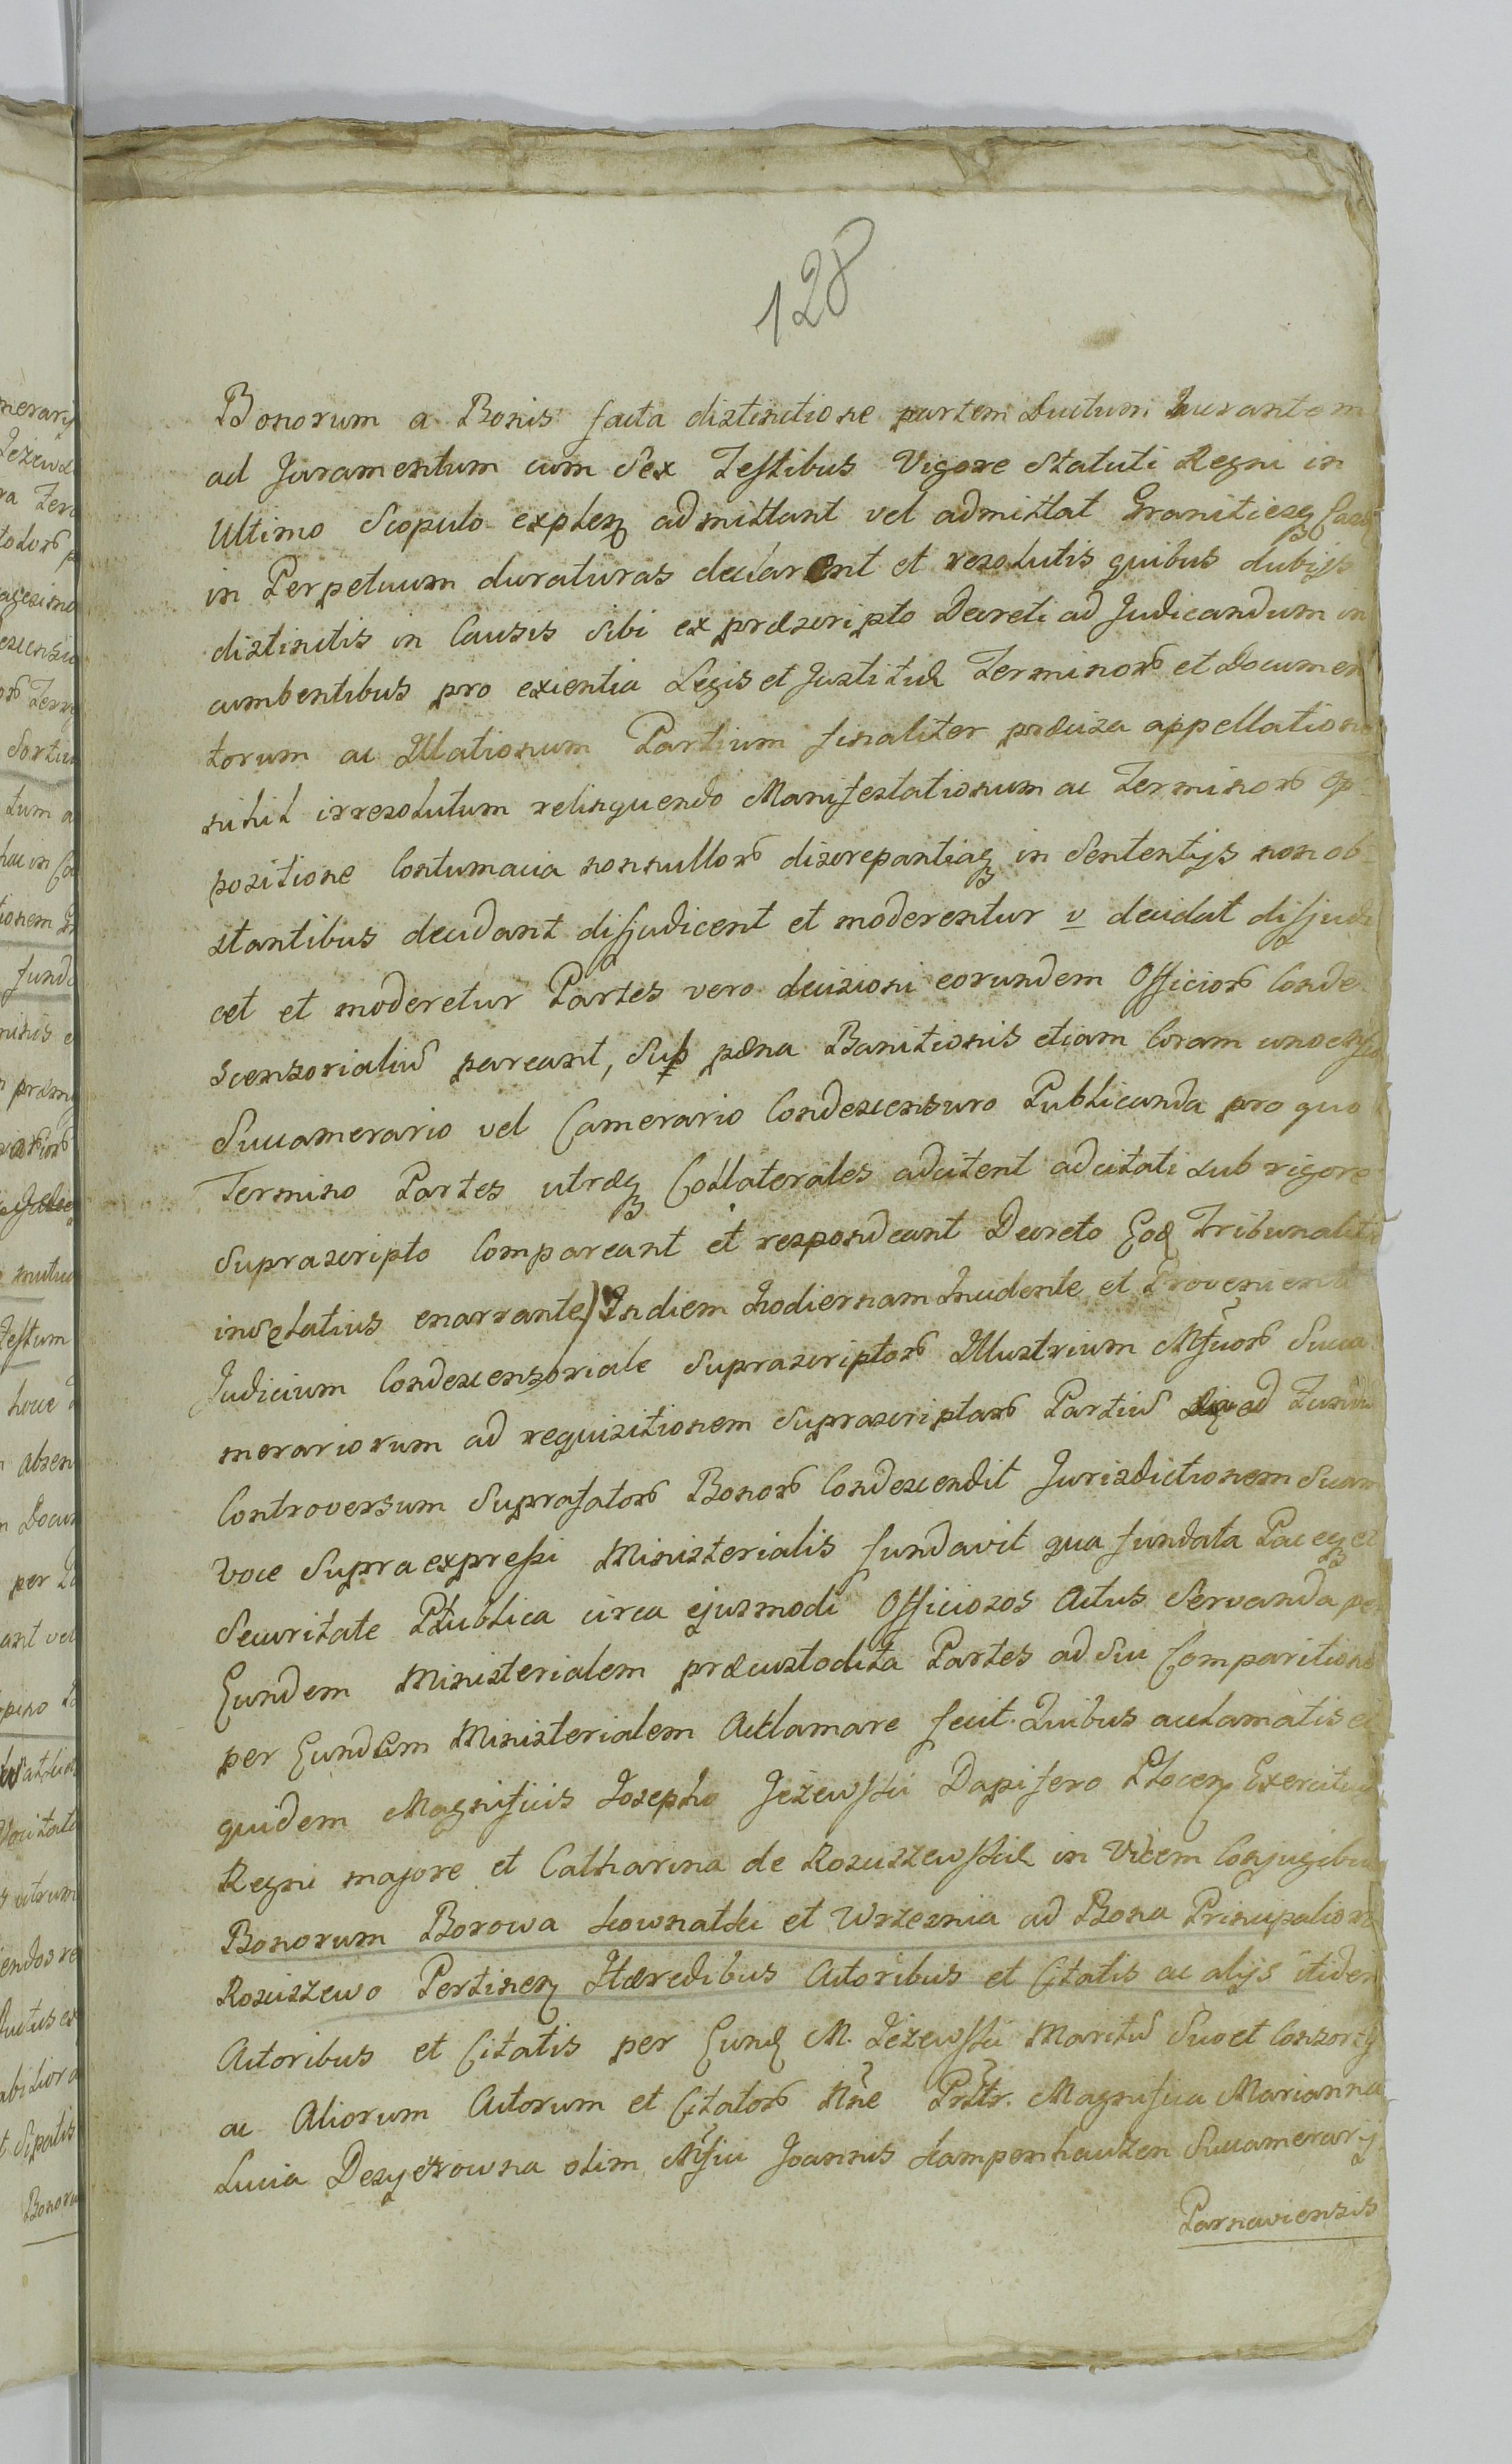 128
Bonorum a Bonis facta distinctione partem Ductum Lucrantem
ad Juramentum cum Sex Testibus Vigore Statuti Regni in
Ultimo Scopulo explen admittant vel admittat Granitiesq
in Perpetuum duraturas declarent et resolutis quibus dubijs
distinctis in Causis Sibi ex præscripto Decreti ad Judicandum in
cumbentibus pro exientia Legis et Justitiæ Terminorũ et Documen
torum ac Illationum Partium finaliter præcisa appellatione
nihil irresolutum relinquendo Manifestationum ac Terminorũ op-
positione Contumacia nonnullorũ discrepantiaq in Sententijs non ob-
stantibus decidant disjudicent et moderentur v decidat disjudi
cet et moderetur Partes vero decisioni eorundem Officiorũ Conde-
scensorialiũ pareant, Sub pæna Banitionis etiam Coram uno
Succamerario vel Camerario Condescensuro Publicanda pro quo
Termino Partes utræq Collaterales adcitent adcitati sub rigore
Suprascripto Compareant et respondeant Decreto Eod
enarrante) In diem hodiernam Incidente et Proveniente
Judicium Condescensoriale Suprascriptorũ Illustrium Mficorũ Succa
merariorum ad requisitionem Suprascriptarũ Partiũ ad Fundũ
Controversum Suprafatorũ Bonorũ Condescendit Jurisdictionem Suam
Voce Supra expressi Ministerialis fundavit qua fundata Paceq et
Securitate Publica circa ejusmodi Officiosos Actus Servanda per
Eundem Ministerialem præcustodita Partes ad Sui Comparitione
per Eundem Ministerialem Acclamare fecit. Quibus acclamatis et
quidem Magnificis Josepho Jeżewski Dapifero Plocen Exercituũ
Regni majore et Catharina de Rosciszewskie in Vicem Conjugibus
Bonorum Borowa Łownatki et Wrzesnia ad Bona Principaliorũ
Rosciszewo Pertinen Hæredibus Actoribus et Citatis ac alijs itidem
Actoribus et Citatis per Eund M. Jeżewski Maritũ Suo et Consortis
ac Aliorum Actorum et Citatorũ Nne Magnifica Marianna
Lucia olim Mfici Joannis Kampenhauzen Succamerarij
Parnaviensis